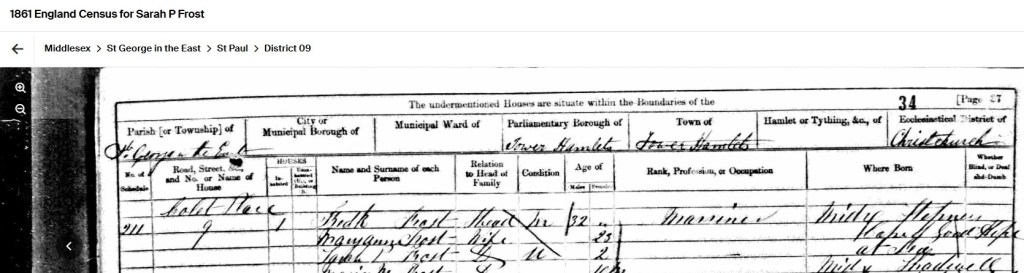 1861 England Census for Sarah P Frost
Middlesex > St George in the East > St Paul > District 09
The undermentioned Houses are situate within the Boundaries of the
34 [Page 37
Parish [or Township] of
St. George in the East
City or Municipal Borough of
Municipal Ward of
Parliamentary Borough of
Tower Hamlets
Town of
Tower Hamlets
Hamlet or Tything, &c., of
Ecclesiastical District of
Christchurch
No. of Schedule
Road, Street, &c., and No. or Name of House
HOUSES
Inhabited
Name and Surname of each Person
Relation to Head of Family
Condition
Age of
Males Females
Rank, Profession, or Occupation
Where Born
Whether Blind, or Deaf and-Dumb
Colet Place
211 9 1 Frost Head Mr 32 Mariner Middx Stepney
Maryanne Frost Wife 23 Cape of Good Hope
Sarah Frost 2 at Sea
Middx Shadwell